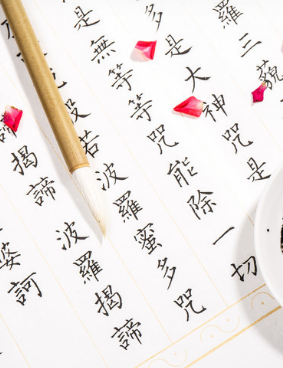 羅三藐
多是大神咒是
是無等等咒能除一切
若波羅蜜多咒
揭諦波羅揭諦
訶